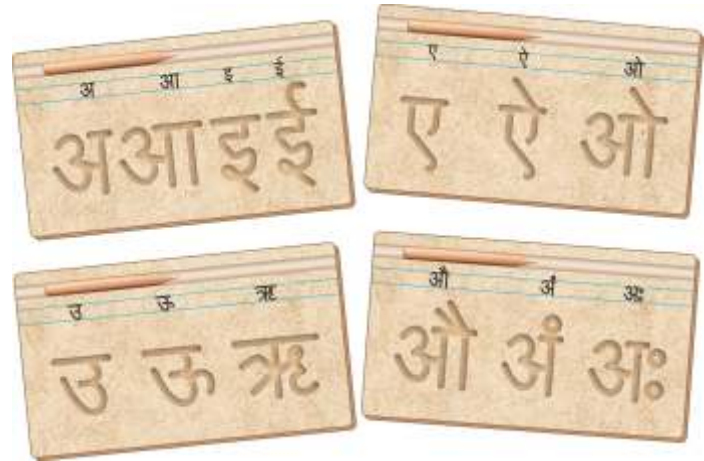 अ आ इ ई
अ आ इ ई
ए ऐ ओ
ए ऐ ओ
उ ऊ ऋ
उ ऊ ऋ
औ अं अः
औ अं अः